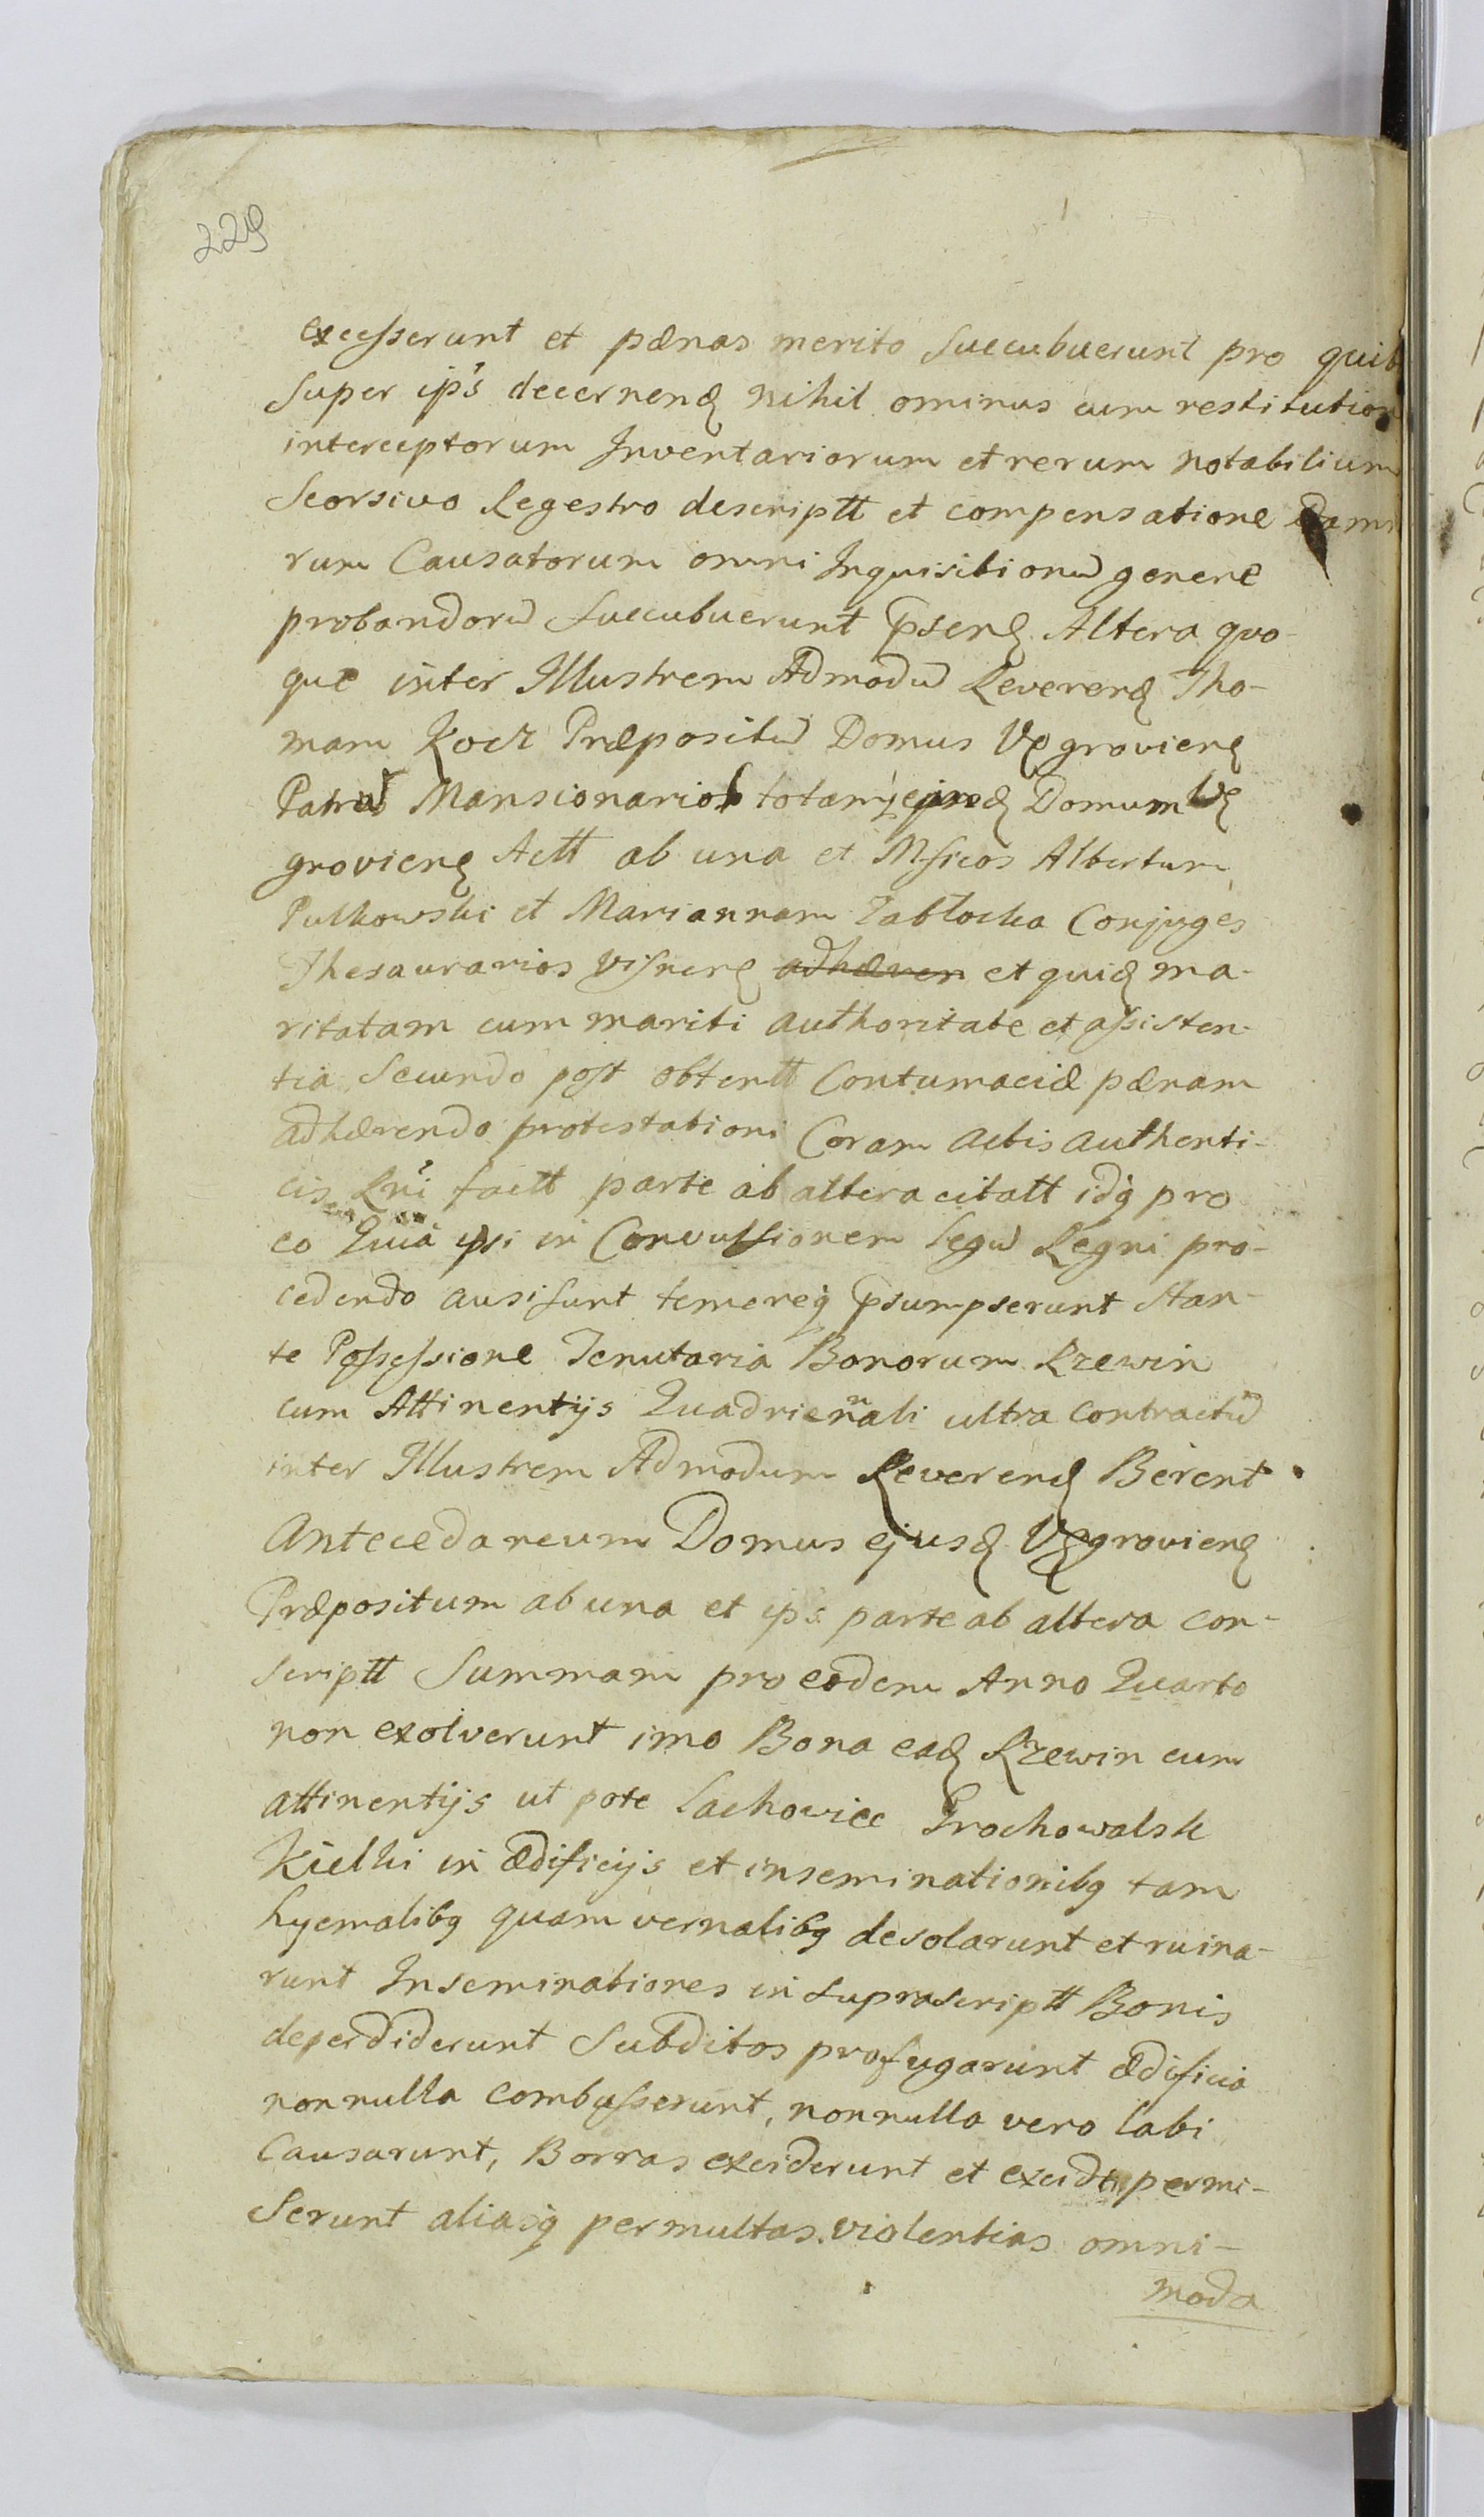 229
excesserunt et pænas merito succubuerunt pro quib
super ips decernend nihil ominus cum restitution
interceptorum Inventariorum et rerum notabilium
Seorsivo Regestro descriptt et compensatione Damn
rum Causatorum omni Inquisitionu genere
probandoru succubuerunt pseng Altera quo-
que inter Illustrem Admodu Reverend Tho-
mam Kock Præpositu Domus Vegroviens
Patres Mansionarios totamq ejusd Domum Ve
groviens Actt ab una et Mficos Albertum
Pulkowski et Mariannam Zabłocka Conjuges
Thesaurarios Visnens adhæren et quid ma-
ritatam cum mariti authoritate et assisten-
tia Secundo post obtentt Contumaciæ pænam
adhærendo protestationi Coram Actis authenti-
cis Rni factt parte ab altera citatt idq pro
eo Quia ipsi in Convulsionem Legu Regni pro-
cedendo ausi sunt temereq psumpserunt stan-
te Possessione Tenutaria Bonorum Rzewin
cum Attinentijs Quadriennali ultra contractu
inter Illustrem Admodum Reverend Berent
Antecedaneum Domus ejusd Vegroviens
Præpositum ab una et ips parte ab altera con-
scriptt Summam pro eodem Anno Quarto
non exolverunt imo Bona ead Rzewin cum
attinentijs ut pote Lachowiec Grochowalsk
Kielki in ædificijs et inseminationibq tam
hyemalibq quam vernalibq desolarunt et ruina-
runt Inseminationes in suprascriptt Bonis
deperdiderunt Subditos profugarunt ædificia
nonnulla combusserunt, nonnulla vero labi
Causarunt, Borras exciderunt et excidi permi-
serunt aliasq permultas violentias omni-
moda